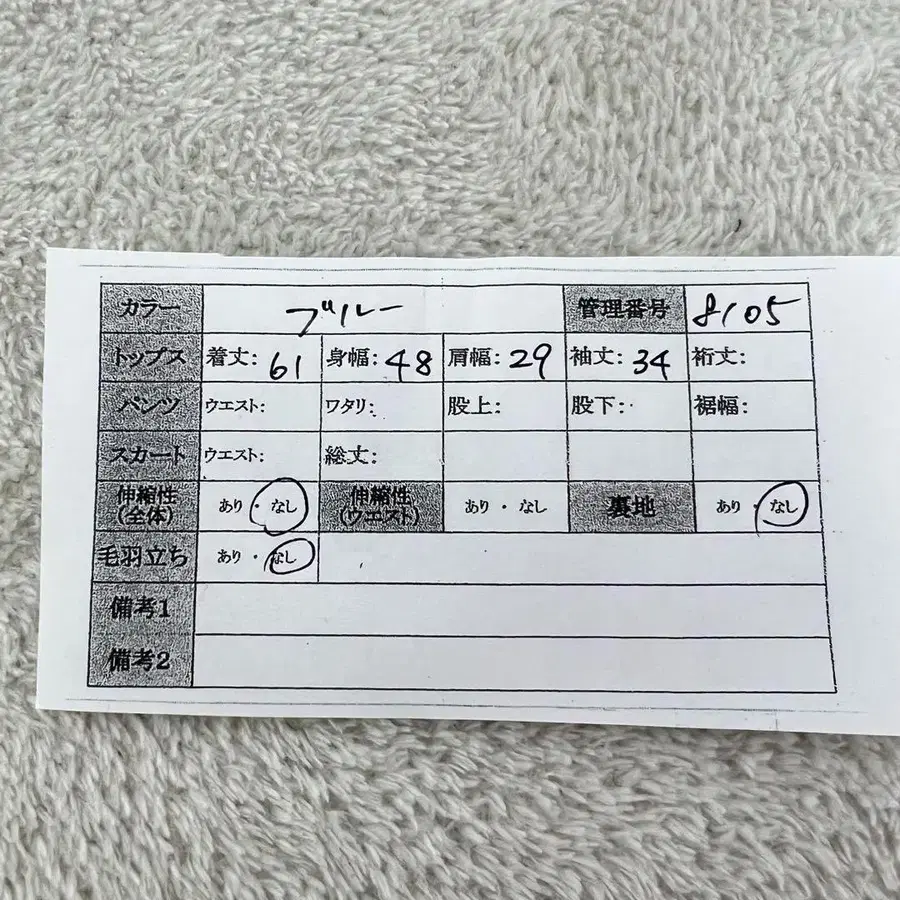 カラー ブルー 管理番号 8105
トップス 着丈: 61 身幅: 48 肩幅: 29 袖丈: 34 裄丈:
パンツ ウエスト: ワタリ: 股上: 股下: 裾幅:
スカート ウエスト: 総丈:
伸縮性(全体) あり・なし 伸縮性(ウエスト) あり・なし 裏地 あり・なし
毛羽立ち あり・なし
備考1
備考2